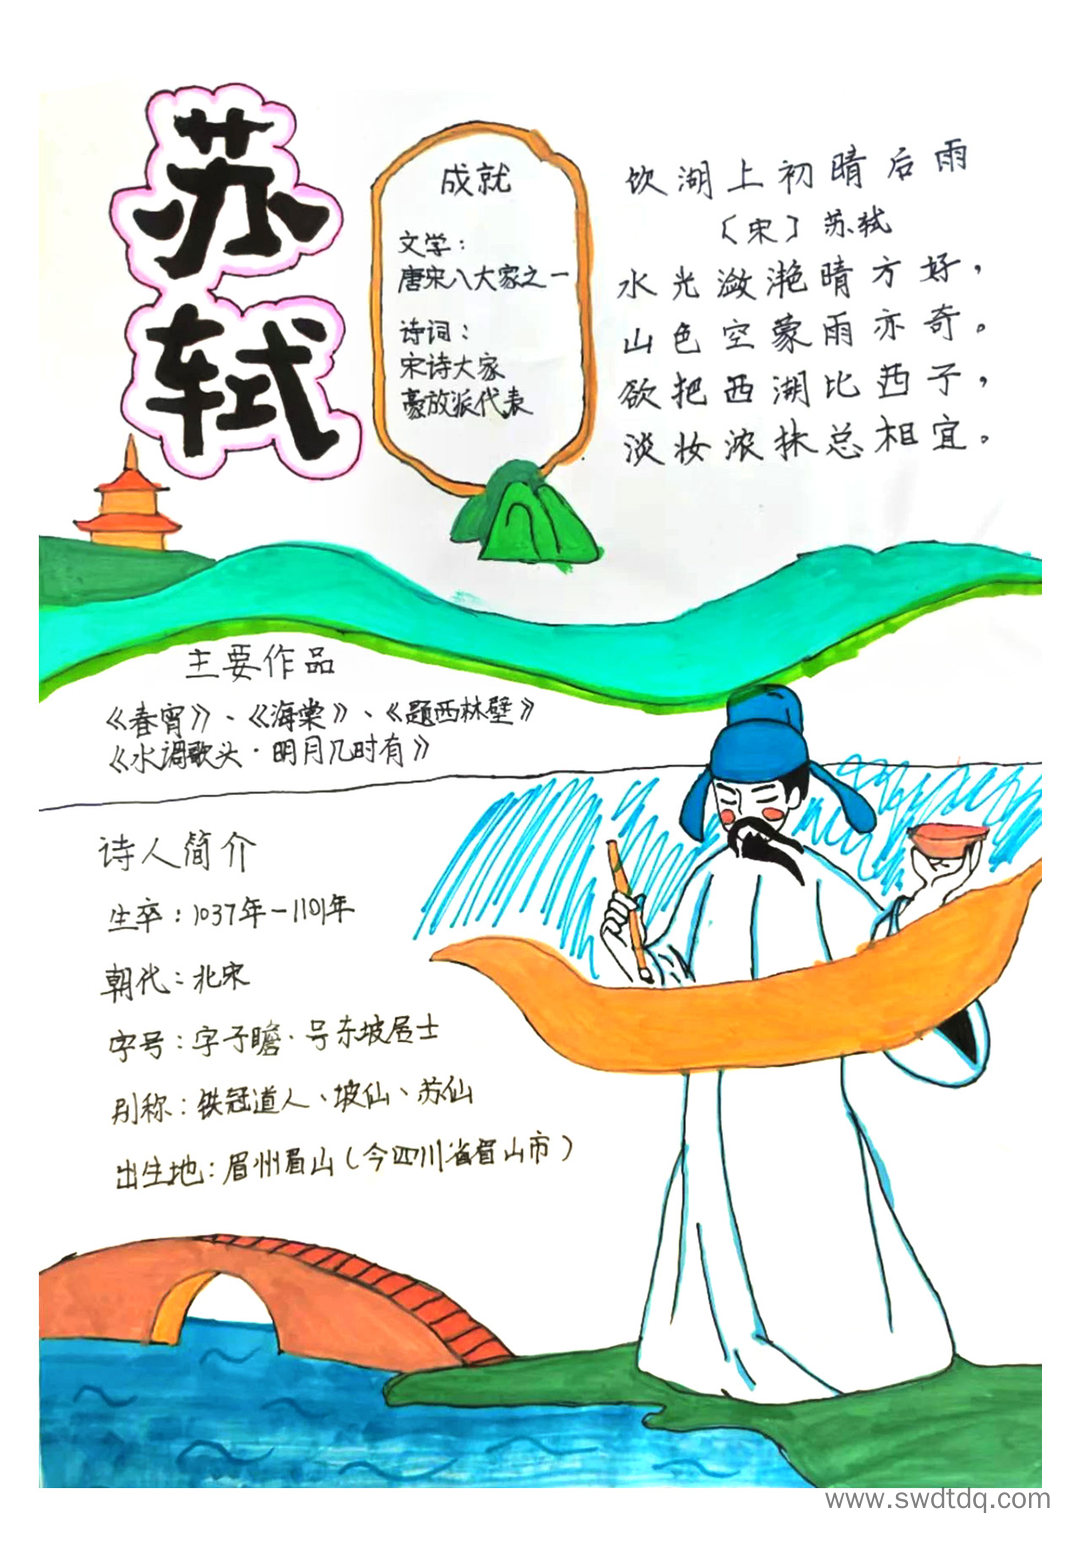 苏轼
成就
文学：
唐宋八大家之一
诗词：
宋诗大家
豪放派代表
饮湖上初晴后雨
〔宋〕苏轼
水光潋滟晴方好，
山色空蒙雨亦奇。
欲把西湖比西子，
淡妆浓抹总相宜。
主要作品
《春宵》、《海棠》、《题西林壁》
《水调歌头·明月几时有》
诗人简介
生卒：1037年－1101年
朝代：北宋
字号：字子瞻·号东坡居士
别称：铁冠道人、坡仙、苏仙
出生地：眉州眉山（今四川省眉山市）
www.swdtdq.com